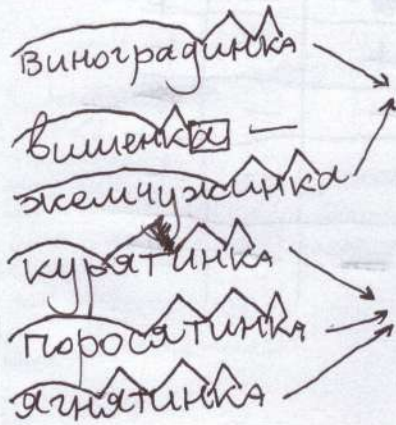 виноградинка
вишенка —
жемчужинка
курятинка
поросятинка
ягнятинка